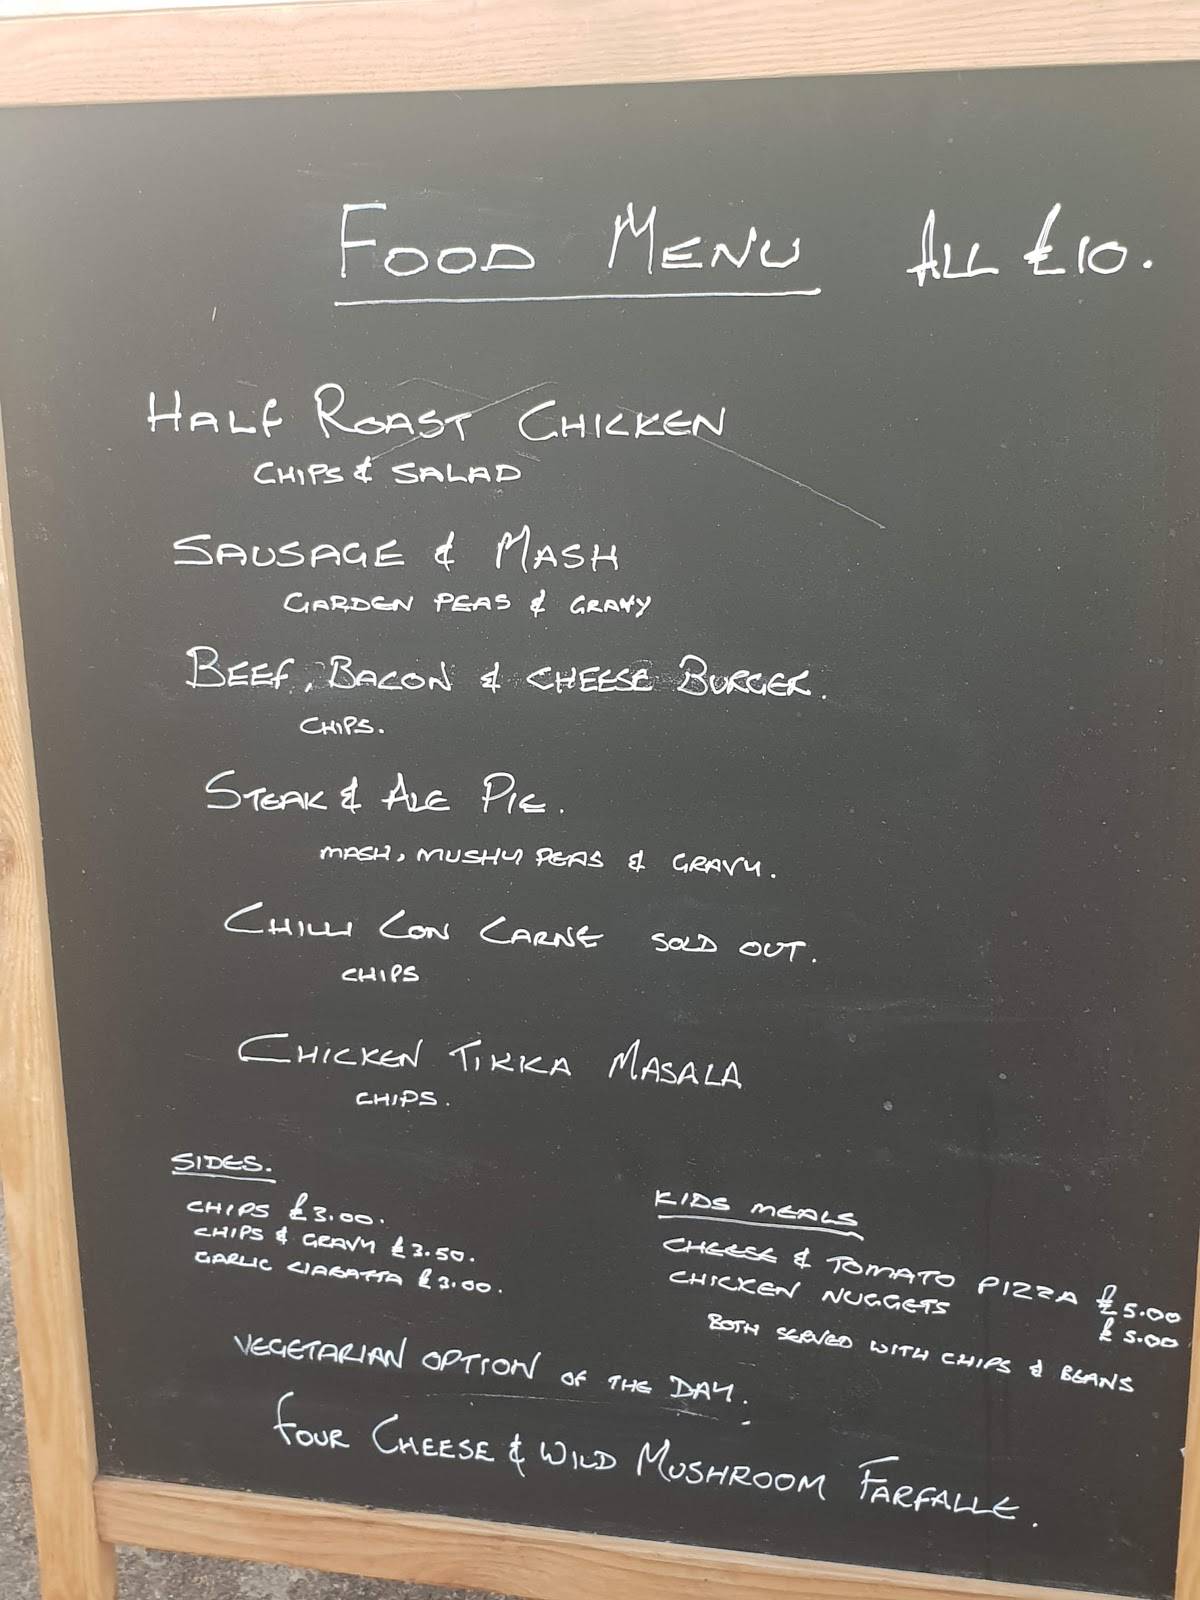 FOOD MENU ALL £10.
HALF ROAST CHICKEN
CHIPS & SALAD
SAUSAGE & MASH
GARDEN PEAS & GRAVY
BEEF, BACON & CHEESE BURGER.
CHIPS.
STEAK & ALE PIE.
MASH, MUSHY PEAS & GRAVY.
CHILLI CON CARNE SOLD OUT.
CHIPS
CHICKEN TIKKA MASALA
CHIPS.
SIDES.
CHIPS £3.00.
CHIPS & GRAVY £3.50.
GARLIC CIABATTA £3.00.
KIDS MEALS
CHEESE & TOMATO PIZZA £5.00
CHICKEN NUGGETS £5.00
BOTH SERVED WITH CHIPS & BEANS
VEGETARIAN OPTION OF THE DAY.
FOUR CHEESE & WILD MUSHROOM FARFALLE.